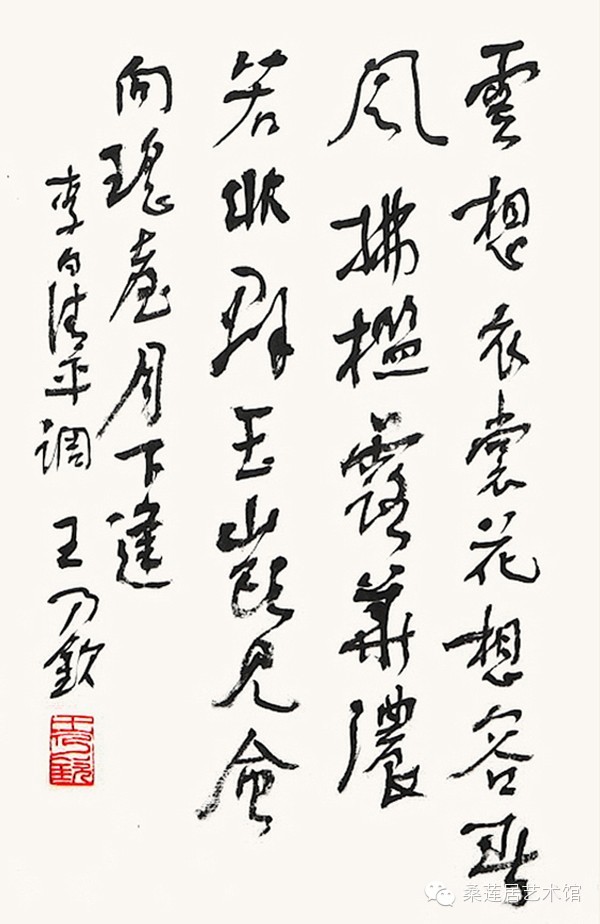 雲想衣裳花想容春
風拂檻露華濃
若非群玉山頭見會
向瑤臺月下逢
李白清平調 王乃欽
王乃欽
桑莲居艺术馆